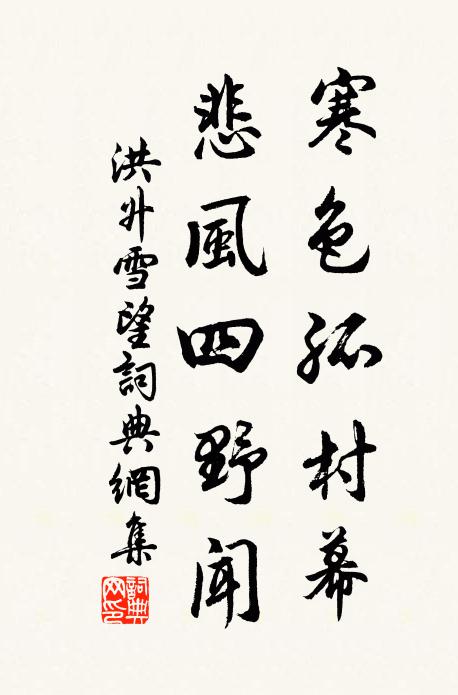 寒色孤村幕
悲風四野聞
洪升雪望詞典網集
詞典网印